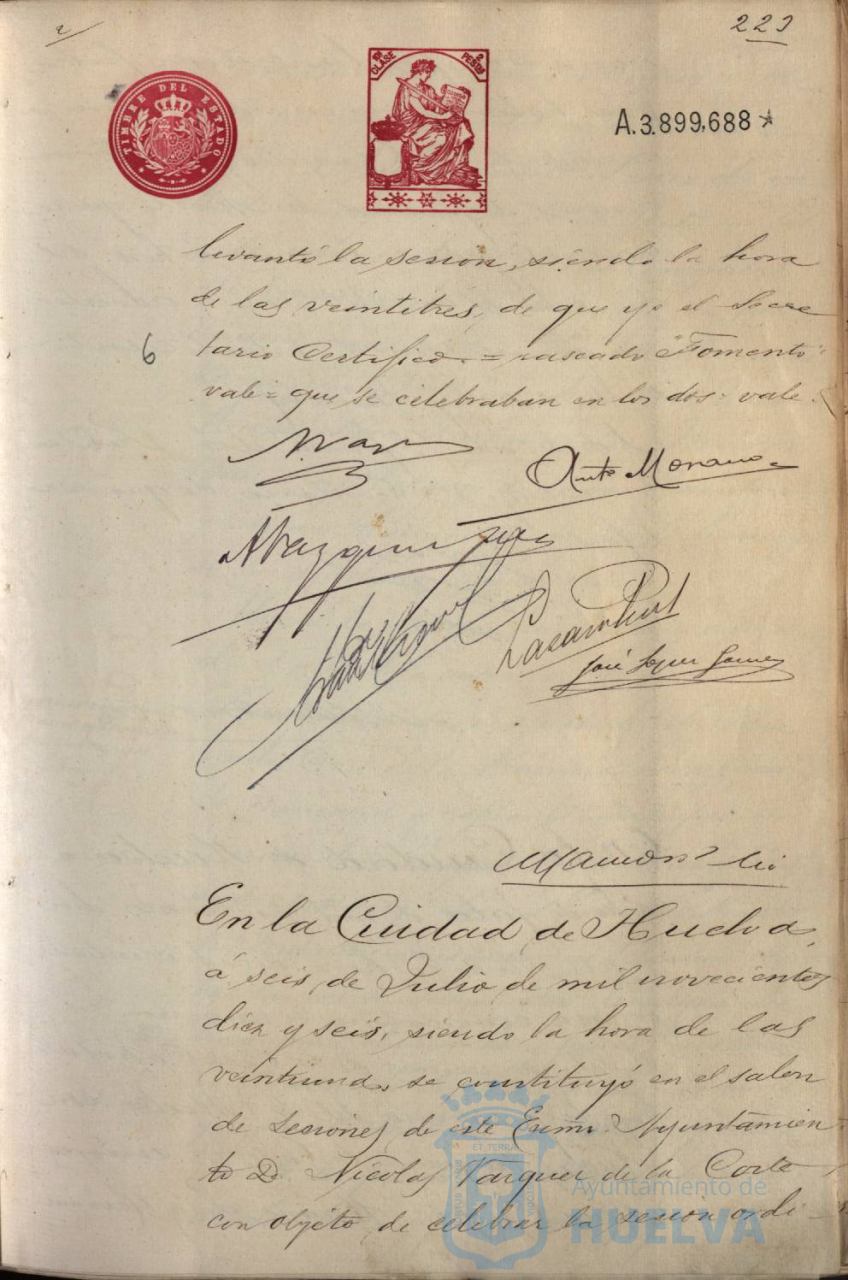 223
TIMBRE DEL ESTADO
10ª CLASE 2 PESETAS
A.3.899,688 *
levantó la sesion, siendo la hora
de las veintitres, de que yo el Secre
6
tario Certifico. = raspado "Fomento"
vale = que se celebraban en los dos = vale.
Antº Moreno
A Vazquez
José Lopez Gomez
En la Ciudad de Huelva,
á seis de Julio de mil novecientos
diez y seis, siendo la hora de las
veintiuna, se constituyó en el salon
de Sesiones de este Excmo. Ayuntamien-
to D. Nicolas Vazquez de la Corte
con objeto de celebrar la sesion ordi-
Ayuntamiento de
HUELVA